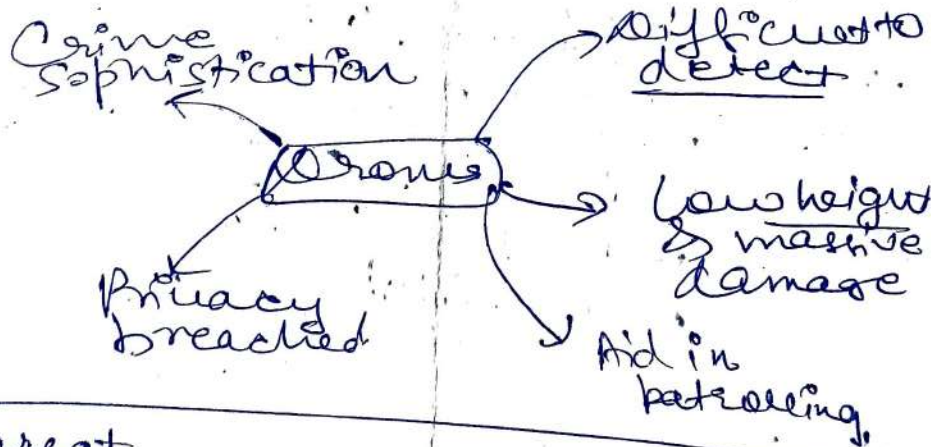 Crime
Sophistication
Difficult to
detect
Drones
Low height
& massive
damage
Privacy
breached
Aid in
patrolling.